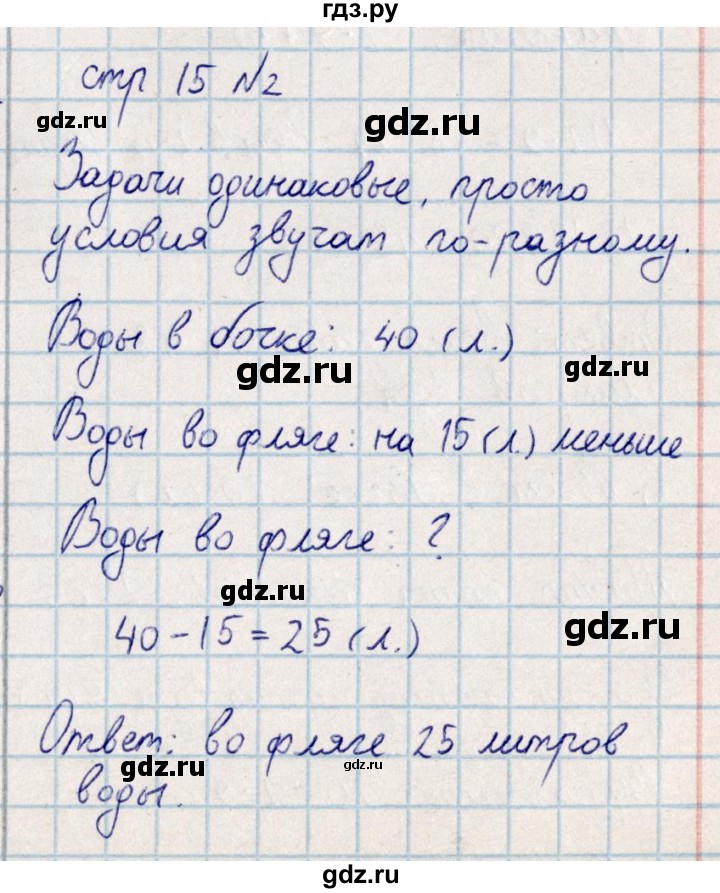 гдз.ру
стр 15 №2
gdz.ru
gdz.ru
Задачи одинаковые, просто
условия звучат по-разному.
Воды в бочке: 40 (л.)
gdz.ru
gdz.ru
Воды во фляге: на 15 (л.) меньше
Воды во фляге: ?
gdz.ru
gdz.ru
40-15=25 (л.)
Ответ: во фляге 25 литров
gdz.ru
gdz.ru
воды.
gdz.ru